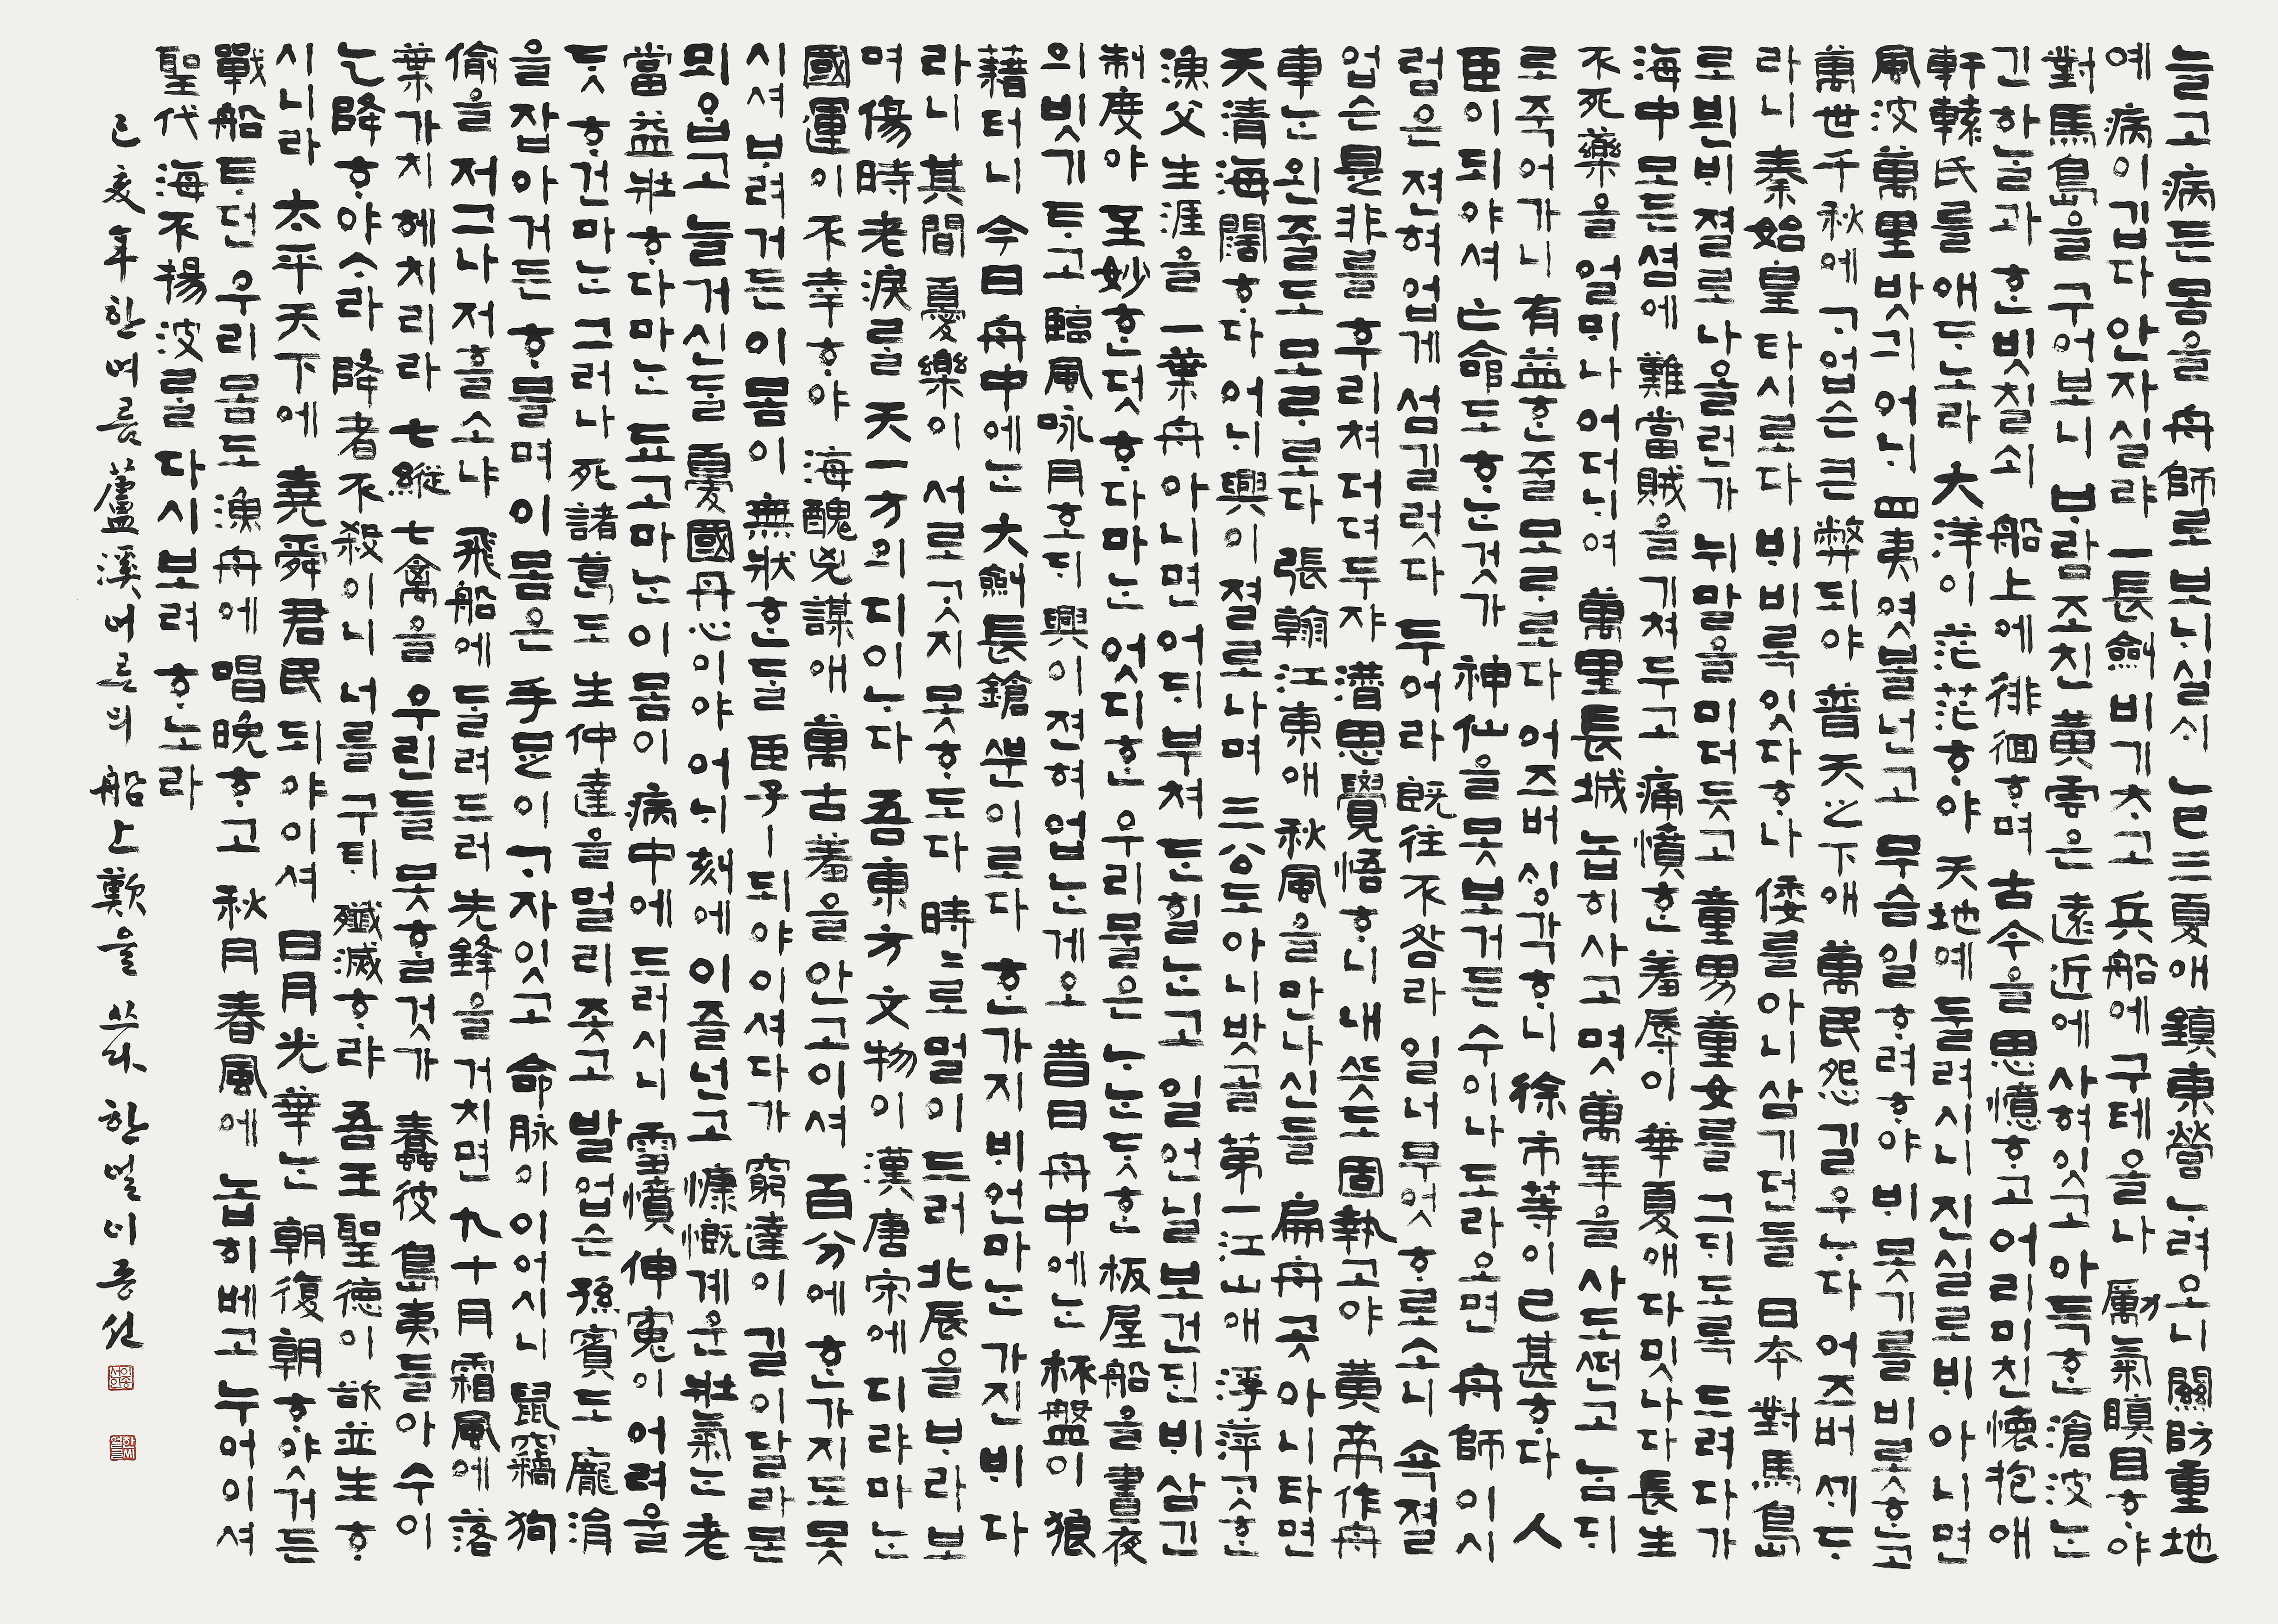 늘고病든몸을 舟師로보ᄂᆡ실ᄉᆡ 乙巳三夏애 鎭東營ᄂᆞ려오니 關防重地
예 病이깁다 안자실랴 一長劍비기ᄎᆞ고 兵船에구테올나 勵氣瞋目ᄒᆞ야
對馬島을구어보니 ᄇᆞ람조친黃雲은 遠近에사혀잇고 아득ᄒᆞᆫ滄波ᄂᆞᆫ
긴하ᄂᆞᆯ과 ᄒᆞᆫ빗칠쇠 船上에徘徊ᄒᆞ며 古今을思憶ᄒᆞ고 어리미친懷抱애
軒轅氏를애ᄃᆞ노라 大洋이茫茫ᄒᆞ야 天地예둘려시니 진실로ᄇᆡ아니면
風波萬里밧긔 어ᄂᆡ四夷엿볼넌고 무슴일ᄒᆞ려ᄒᆞ야 ᄇᆡ못기를비롯ᄒᆞᆫ고
萬世千秋에 ᄀᆞ업슨큰弊되야 普天之下애 萬民怨길우ᄂᆞ다 어즈버ᄭᆡᄃᆞ
라니 秦始皇타시로다 ᄇᆡ비록잇다ᄒᆞ나 倭를아니삼기던들 日本對馬島
로뷘ᄇᆡ졀로나올런가 뉘말을미더듯고 童男童女를그ᄃᆡ도록드려다가
海中모든셤에 難當賊을기쳐두고 痛憤ᄒᆞᆫ羞辱이 華夏애다밋나다 長生
不死藥을얼ᄆᆡ나어더ᄂᆡ여 萬里長城놉히사고 몃萬年을사도ᄯᅥᆫ고 ᄂᆞᆷᄃᆡ
로죽어가니 有益ᄒᆞᆫ줄모ᄅᆞ로다 어즈버ᄉᆡᆼ각ᄒᆞ니 徐市等이已甚ᄒᆞ다 人
臣이되야셔 亡命도ᄒᆞᄂᆞᆫ것가 神仙을못보거든 수이나도라오면 舟師이시
럼은 젼혀업게섬길럿다 두어라 旣往不咎라 일너무엇ᄒᆞ로소니 속졀
업슨是非를후리쳐더뎌두쟈 潛思覺悟ᄒᆞ니 내ᄯᅳᆺ도固執고야 黃帝作舟
車ᄂᆞᆫ왼줄도모ᄅᆞ로다 張翰江東애 秋風을만나신들 扁舟곳아니타면
天淸海闊ᄒᆞ다 어ᄂᆡ興이졀로나며 三公도아니밧골 第一江山애 浮萍ᄀᆞᆺᄒᆞᆫ
漁父生涯을 一葉舟아니면 어ᄃᆡ부쳐ᄃᆞᆫ힐ᄂᆞᆫ고 일언닐보건ᄃᆡᆫ ᄇᆡ삼긴
制度야 至妙ᄒᆞᆫ덧ᄒᆞ다마ᄂᆞᆫ 엇디ᄒᆞᆫ우리물은 ᄂᆞᄂᆞᆫᄃᆞᆺᄒᆞᆫ板屋船을晝夜
의빗기ᄐᆞ고 臨風咏月호ᄃᆡ 興이젼혀업ᄂᆞᆫ게오 昔日舟中에ᄂᆞᆫ 杯盤이狼
藉터니 今日舟中에ᄂᆞᆫ 大劍長鎗ᄲᅮᆫ이로다 ᄒᆞᆫ가지ᄇᆡ언마ᄂᆞᆫ 가진ᄇᆡ다
라니 其間憂樂이 서로ᄀᆞᆺ지못ᄒᆞ도다 時〻로멀이드러 北辰을ᄇᆞ라보
며 傷時老淚를 天一方의디이ᄂᆞ다 吾東方文物이 漢唐宋에디랴마ᄂᆞᆫ
國運이不幸ᄒᆞ야 海醜兇謀애 萬古羞을안고이셔 百分에ᄒᆞᆫ가지도못
시셔ᄇᆞ려거든 이몸이無狀ᄒᆞᆫᄃᆞᆯ 臣子ㅣ되야이셔다가 窮達이길이달라몯
뫼ᄋᆞᆸ고늘거신ᄃᆞᆯ 憂國丹心이야 어ᄂᆡ刻에이즐넌고 慷慨계운壯氣ᄂᆞᆫ老
當益壯ᄒᆞ다마ᄂᆞᆫ 됴고마ᄂᆞᆫ이몸이 病中에드러시니 雪憤伸寃이어려올
ᄃᆞᆺᄒᆞ건마ᄂᆞᆫ 그러나死諸葛도 生仲達을멀리좃고 발업슨孫臏도 龐涓
을잡아거든 ᄒᆞ믈며이몸은 手足이ᄀᆞ자잇고 命脉이이어시니 鼠竊狗
偸을저그나저흘소냐 飛船에ᄃᆞᆯ려드러 先鋒을거치면 九十月霜風에落
葉가치헤치리라 七縱七禽을 우린들못ᄒᆞᆯ것가 蠢彼島夷들아 수이
乞降ᄒᆞ야ᄉᆞ라 降者不殺이니 너를구ᄐᆡ殲滅ᄒᆞ랴 吾王聖德이 欲並生ᄒᆞ
시니라 太平天下에 堯舜君民되야이셔 日月光華ᄂᆞᆫ 朝復朝ᄒᆞ얏거든
戰船ᄐᆞ던우리몸도 漁舟에唱晚ᄒᆞ고 秋月春風에 놉히베고누어이셔
聖代海不揚波를다시보려ᄒᆞ노라
己亥年 한여름 蘆溪어른의 船上歎을 쓰다 한얼 이종선